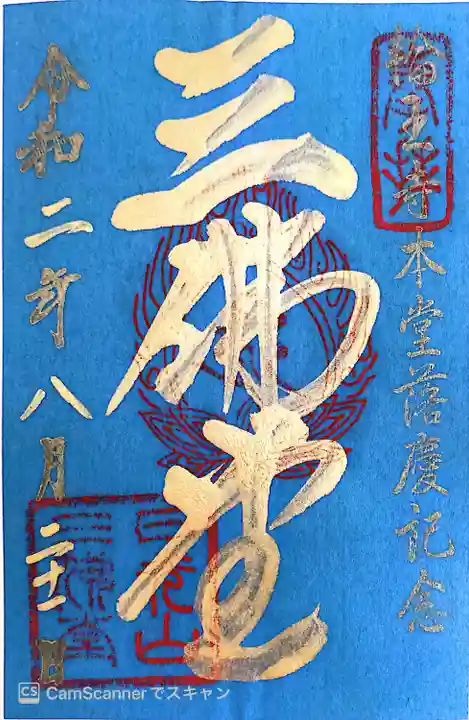 輪王寺本堂落慶記念
三佛堂
令和二年八月二十一日
日光山
三佛堂
CS CamScannerでスキャン